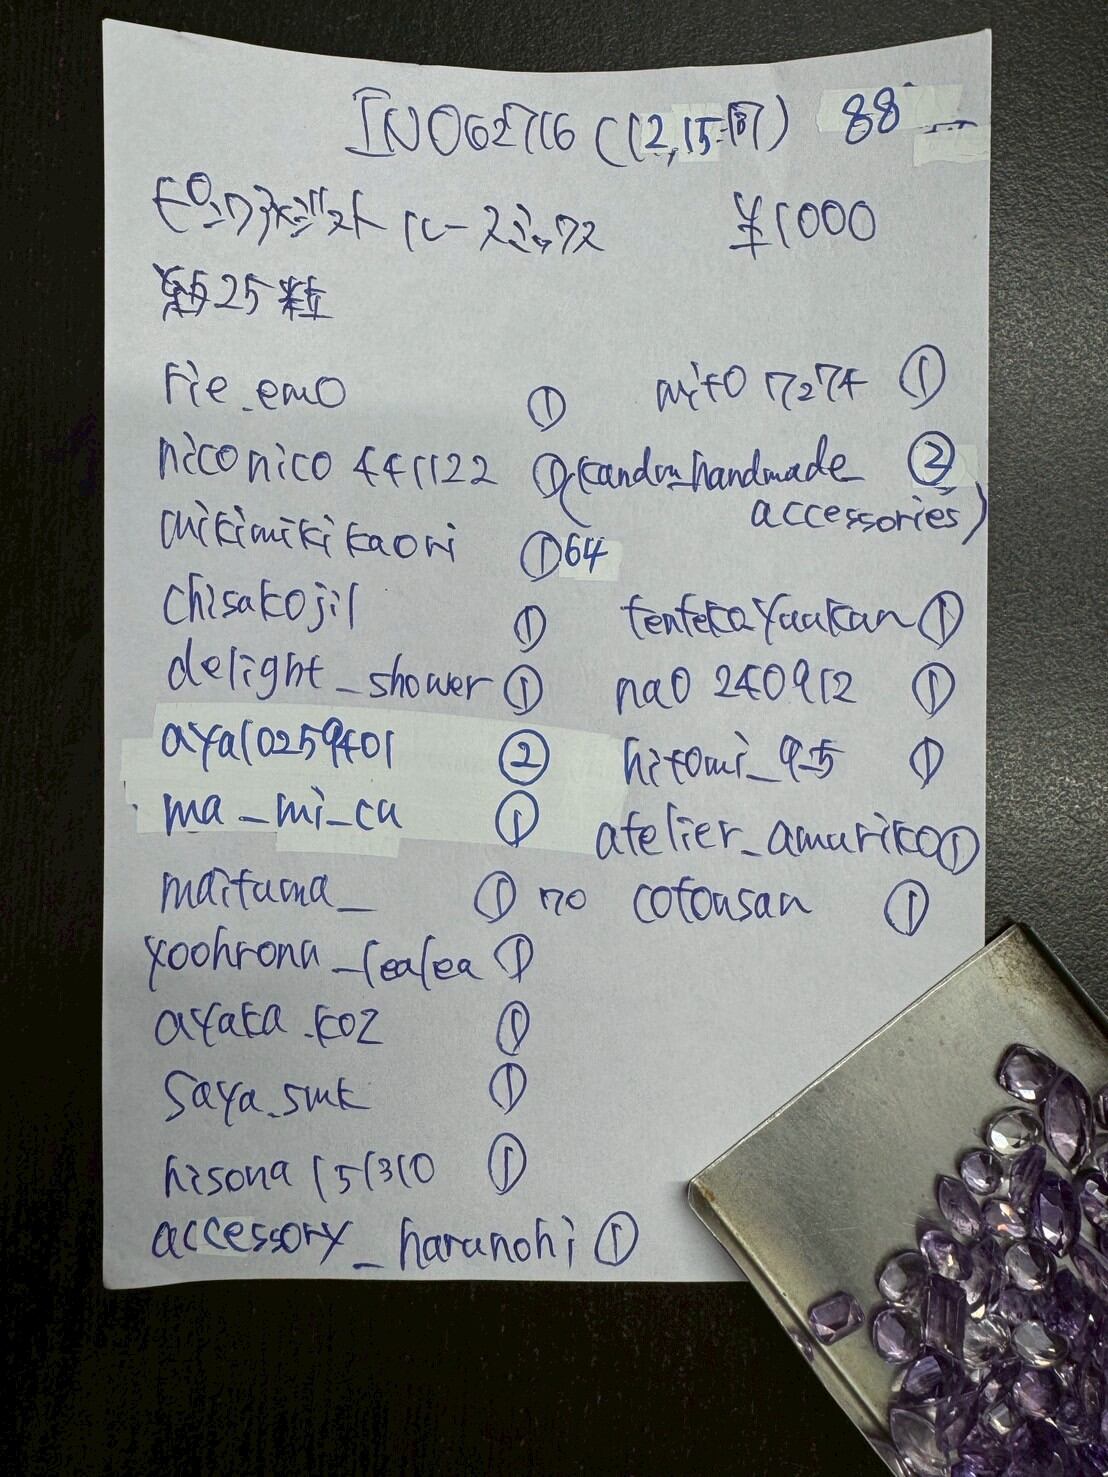 IN062716 (12,15-17) 88
ピンクアメジスト ルースミックス ¥1000
約25粒
rie_emo ①
niconico441122 ①
mikimikikaori ①64
chisakojil ①
delight_shower ①
aya10259401 ②
ma_mi_ca ①
maituma_ ①70
yoohrona_lealea ①
ayaka.koz ①
saya.smk ①
hisona151310 ①
accessory_haranohi ①
mito7274 ①
(kandm_handmade_ ②
accessories)
tentekoyaakan ①
nao240912 ①
hitomi_9.5 ①
atelier_amuriko ①
cotousan ①